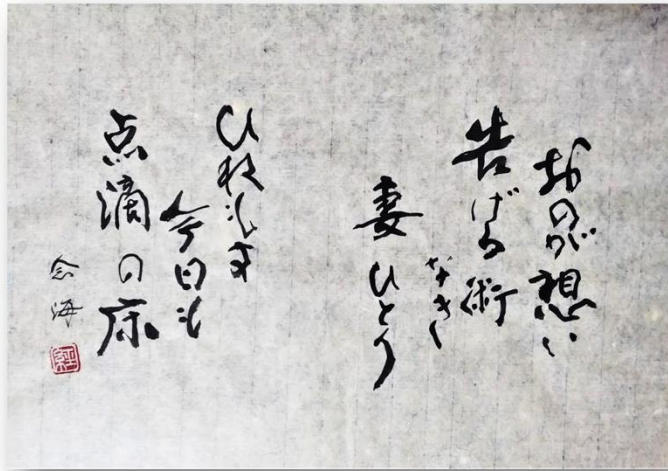 おのが想い
告げる術
なき
妻ひとり
ひねもす
今日も
点滴の床
念海